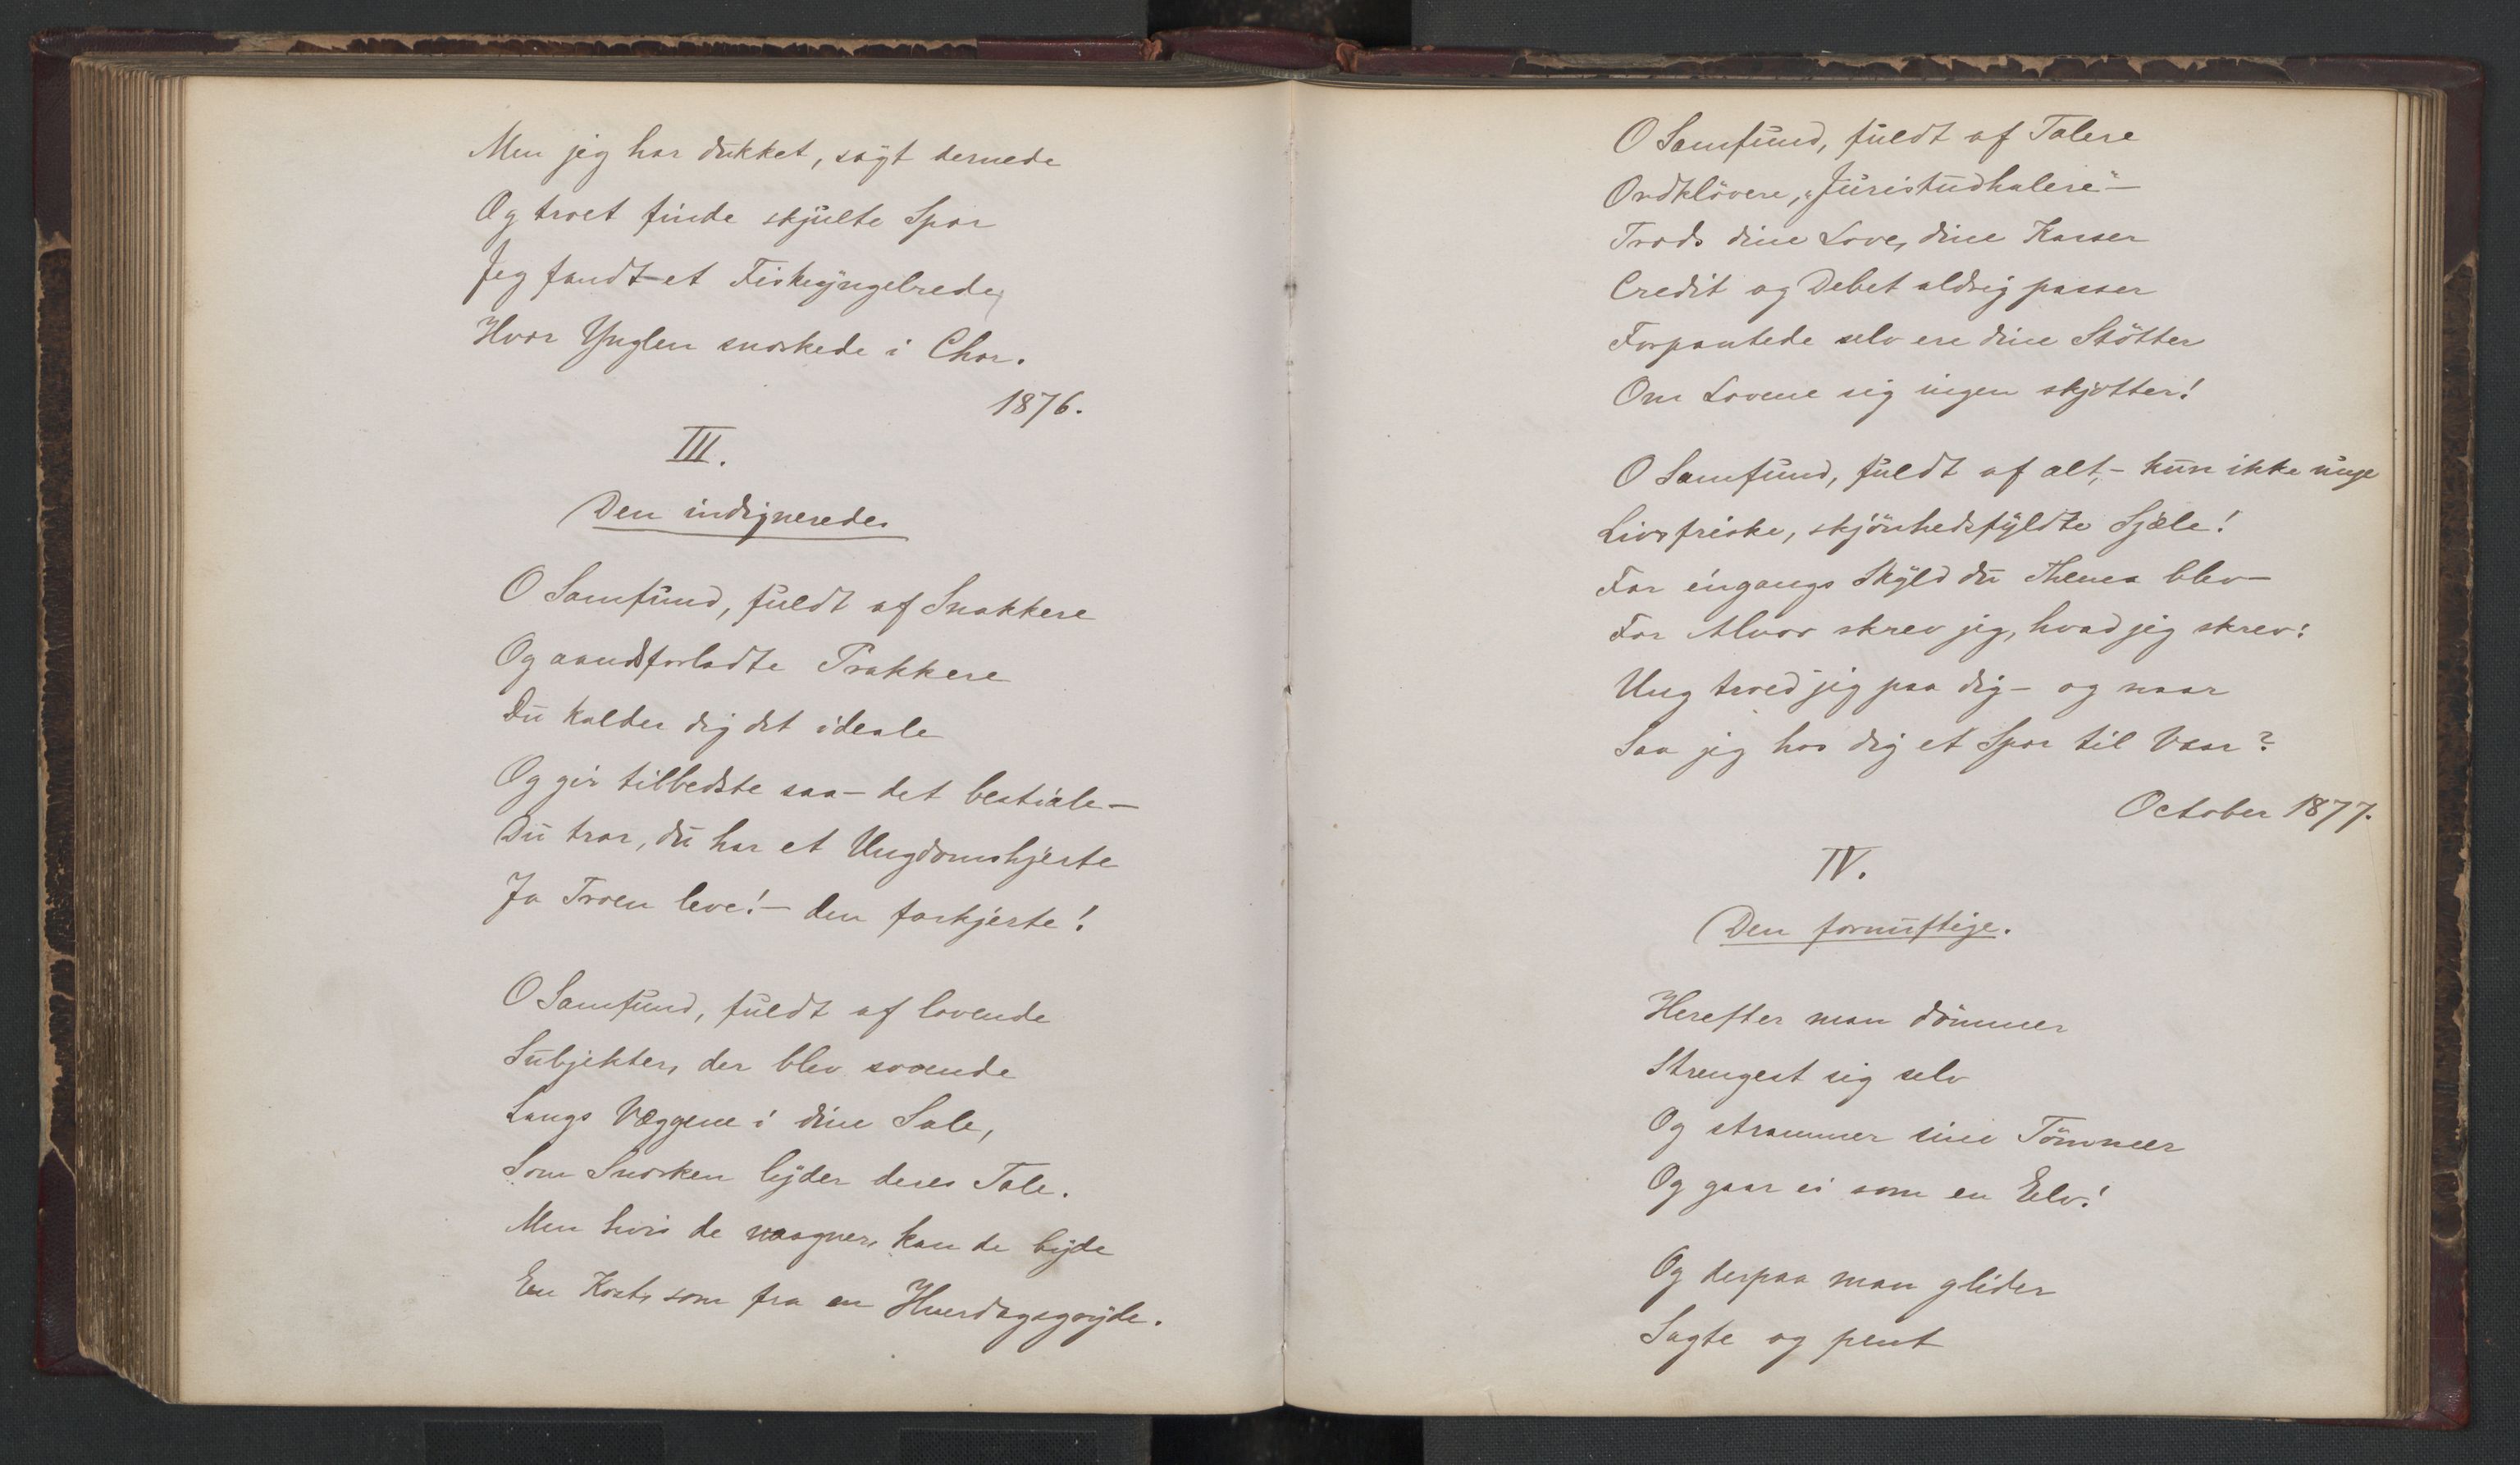 Men jeg har dukket, søgt dernede
Og troet finde skjulte Spor
Jeg fandt et Fiskeyngelrede,
Hvor Ynglen snorkede i Chor.
1876.
III.
Den indignerede.
O Samfund, fuldt af Snakkere
Og aandsforladte Prakkere
Du kalder dig det ideale
Og gir tilbedste saa – det bestiale –
Du tror, du har et Ungdomshjerte
Ja Troen leve! – den forkjerte!
O Samfund, fuldt af lovende
Subjekter, der blev sovende
Langs Væggene i dine Sale,
Som Snorken lyder deres Tale.
Men hvis de vaagner, kan de byde
En Kost, som fra en Hverdagsgryde.
O Samfund, fuldt af Talere
Ordklövere, "Juristudhalere" –
Trods dine Love, dine Kasser
Credit og Debet aldrig passer
Forpantede selv ere dine Stötter
Om Lovene sig ingen skjøtter!
O Samfund, fuldt af alt, – kun ikke unge
Livsfriske, skjönhedsfyldte Sjæle!
For éngangs Skyld du Thema blev –
For Alvor skrev jeg, hvad jeg skrev:
Ung troed jeg paa dig – og naar
Saa jeg hos dig et Spor til Vaar?
October 1877.
IV.
Den fornuftige.
Herefter man dömmer
Strengest sig selv
Og strammer sine Tömmer
Og gaar ei som en Elv!
Og derpaa man glider
Sagte og pent